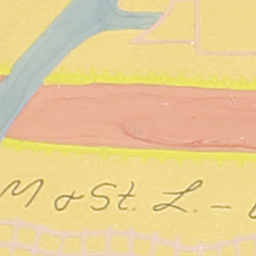 M & St. L. -